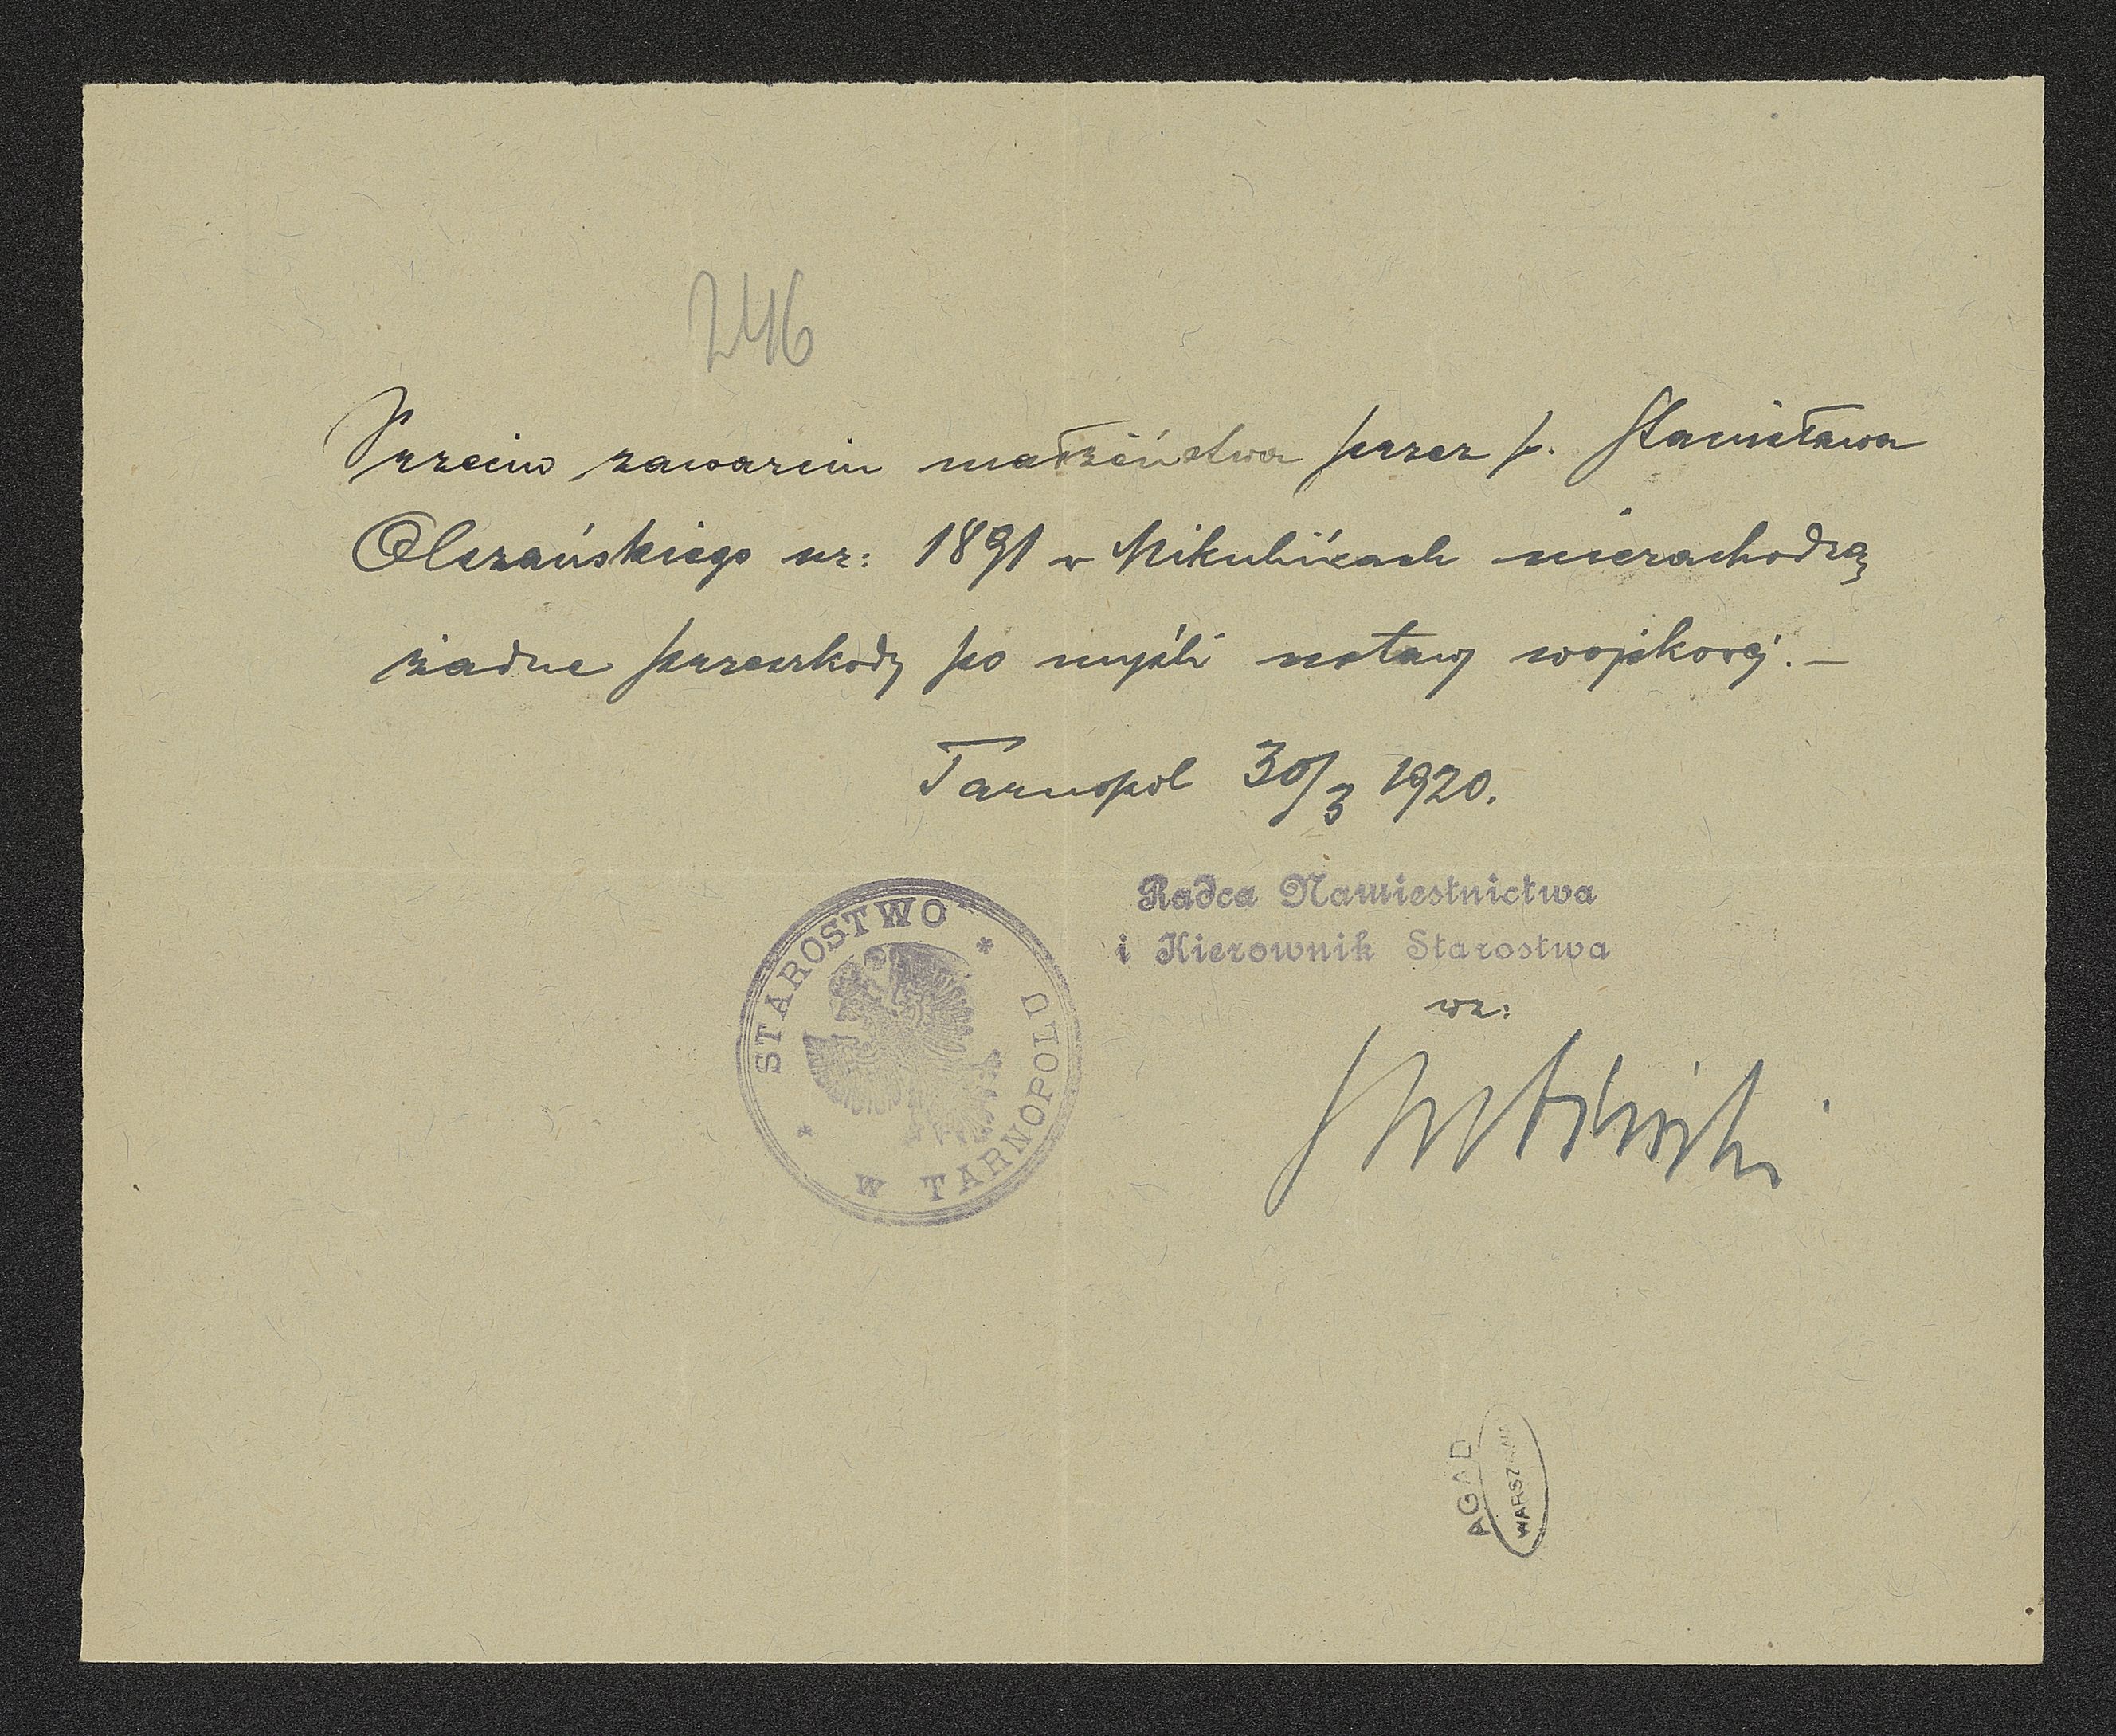 246
Przeciw zawarciu małżeństwa przez p. Stanisława
Olszańskiego ur: 1891 w Mikulińcach niezachodzą
żadne przeszkody po myśli ustawy wojskowej. —
Tarnopol 30/3 1920.
Radca Namiestnictwa
i Kierownik Starostwa
wz:
STAROSTWO
W TARNOPOLU
AGAD
WARSZAWA